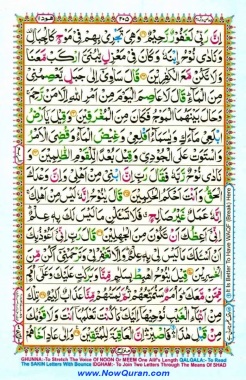 هود ۱۱
۲۰۵
اِنَّ رَبِّیْ لَغَفُوْرٌ رَّحِیْمٌ وَهِیَ تَجْرِیْ بِهِمْ فِیْ مَوْجٍ كَالْجِبَالِ
وَنَادٰی نُوْحُ ابْنَهٗ وَكَانَ فِیْ مَعْزِلٍ یّٰبُنَیَّ ارْكَبْ مَّعَنَا
وَلَا تَكُنْ مَّعَ الْكٰفِرِیْنَ قَالَ سَاٰوِیْۤ اِلٰی جَبَلٍ یَّعْصِمُنِیْ
مِنَ الْمَآءِ قَالَ لَا عَاصِمَ الْیَوْمَ مِنْ اَمْرِ اللّٰهِ اِلَّا مَنْ رَّحِمَ
وَحَالَ بَیْنَهُمَا الْمَوْجُ فَكَانَ مِنَ الْمُغْرَقِیْنَ وَقِیْلَ یٰۤاَرْضُ
ابْلَعِیْ مَآءَكِ وَیٰسَمَآءُ اَقْلِعِیْ وَغِیْضَ الْمَآءُ وَقُضِیَ الْاَمْرُ
وَاسْتَوَتْ عَلَی الْجُوْدِیِّ وَقِیْلَ بُعْدًا لِّلْقَوْمِ الظّٰلِمِیْنَ وَ
نَادٰی نُوْحٌ رَّبَّهٗ فَقَالَ رَبِّ اِنَّ ابْنِیْ مِنْ اَهْلِیْ وَاِنَّ وَعْدَكَ
الْحَقُّ وَاَنْتَ اَحْكَمُ الْحٰكِمِیْنَ قَالَ یٰنُوْحُ اِنَّهٗ لَیْسَ مِنْ اَهْلِكَ
اِنَّهٗ عَمَلٌ غَیْرُ صَالِحٍ فَلَا تَسْـَٔلْنِ مَا لَیْسَ لَكَ بِهٖ عِلْمٌ
اِنِّیْۤ اَعِظُكَ اَنْ تَكُوْنَ مِنَ الْجٰهِلِیْنَ قَالَ رَبِّ اِنِّیْۤ اَعُوْذُ بِكَ
اَنْ اَسْـَٔلَكَ مَا لَیْسَ لِیْ بِهٖ عِلْمٌ وَاِلَّا تَغْفِرْ لِیْ وَتَرْحَمْنِیْۤ اَكُنْ
مِّنَ الْخٰسِرِیْنَ قِیْلَ یٰنُوْحُ اهْبِطْ بِسَلٰمٍ مِّنَّا وَبَرَكٰتٍ عَلَیْكَ وَعَلٰۤی
اُمَمٍ مِّمَّنْ مَّعَكَ وَاُمَمٌ سَنُمَتِّعُهُمْ ثُمَّ یَمَسُّهُمْ مِّنَّا عَذَابٌ اَلِیْمٌ تِلْكَ
مِنْ اَنْۢبَآءِ الْغَیْبِ نُوْحِیْهَاۤ اِلَیْكَ مَا كُنْتَ تَعْلَمُهَاۤ اَنْتَ وَلَا قَوْمُكَ
مِنْ قَبْلِ هٰذَا فَاصْبِرْ اِنَّ الْعَاقِبَةَ لِلْمُتَّقِیْنَ وَاِلٰی عَادٍ اَخَاهُمْ
It Is Better To Have WAQF (Break) Here
GHUNNA:-To Stretch The Voice Of NOON Or MEEM One Alif's Length QALQALA:- To Read
The SAKIN Letters With Bounce IDGHAM:- To Join Two Letters Through The Means Of SHAD
www.NowQuran.com